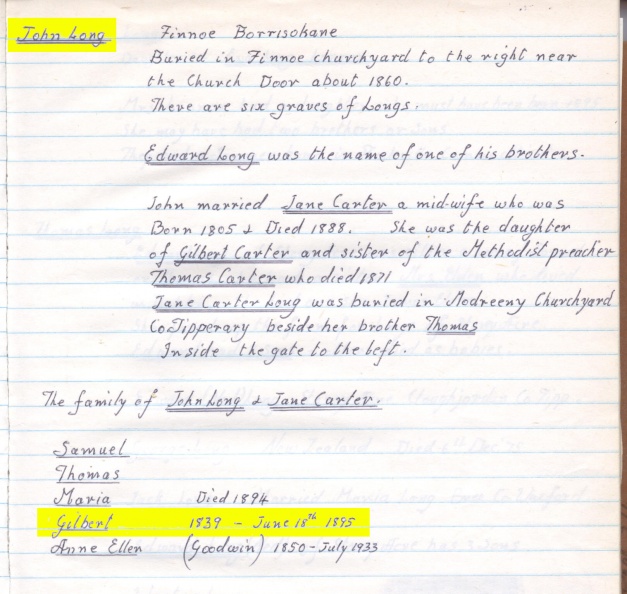 John Long Finnoe Borrisokane
Buried in Finnoe churchyard to the right near
the Church Door about 1860.
There are six graves of Longs.
Edward Long was the name of one of his brothers.
John married Jane Carter a mid-wife who was
Born 1805 & Died 1888. She was the daughter
of Gilbert Carter and sister of the Methodist preacher
Thomas Carter who died 1871
Jane Carter Long was buried in Modreeny Churchyard
Co Tipperary beside her brother Thomas
Inside the gate to the left.
The family of John Long & Jane Carter.
Samuel
Thomas
Maria Died 1894
Gilbert 1839 - June 18th 1895
Anne Ellen (Goodwin) 1850 - July 1933